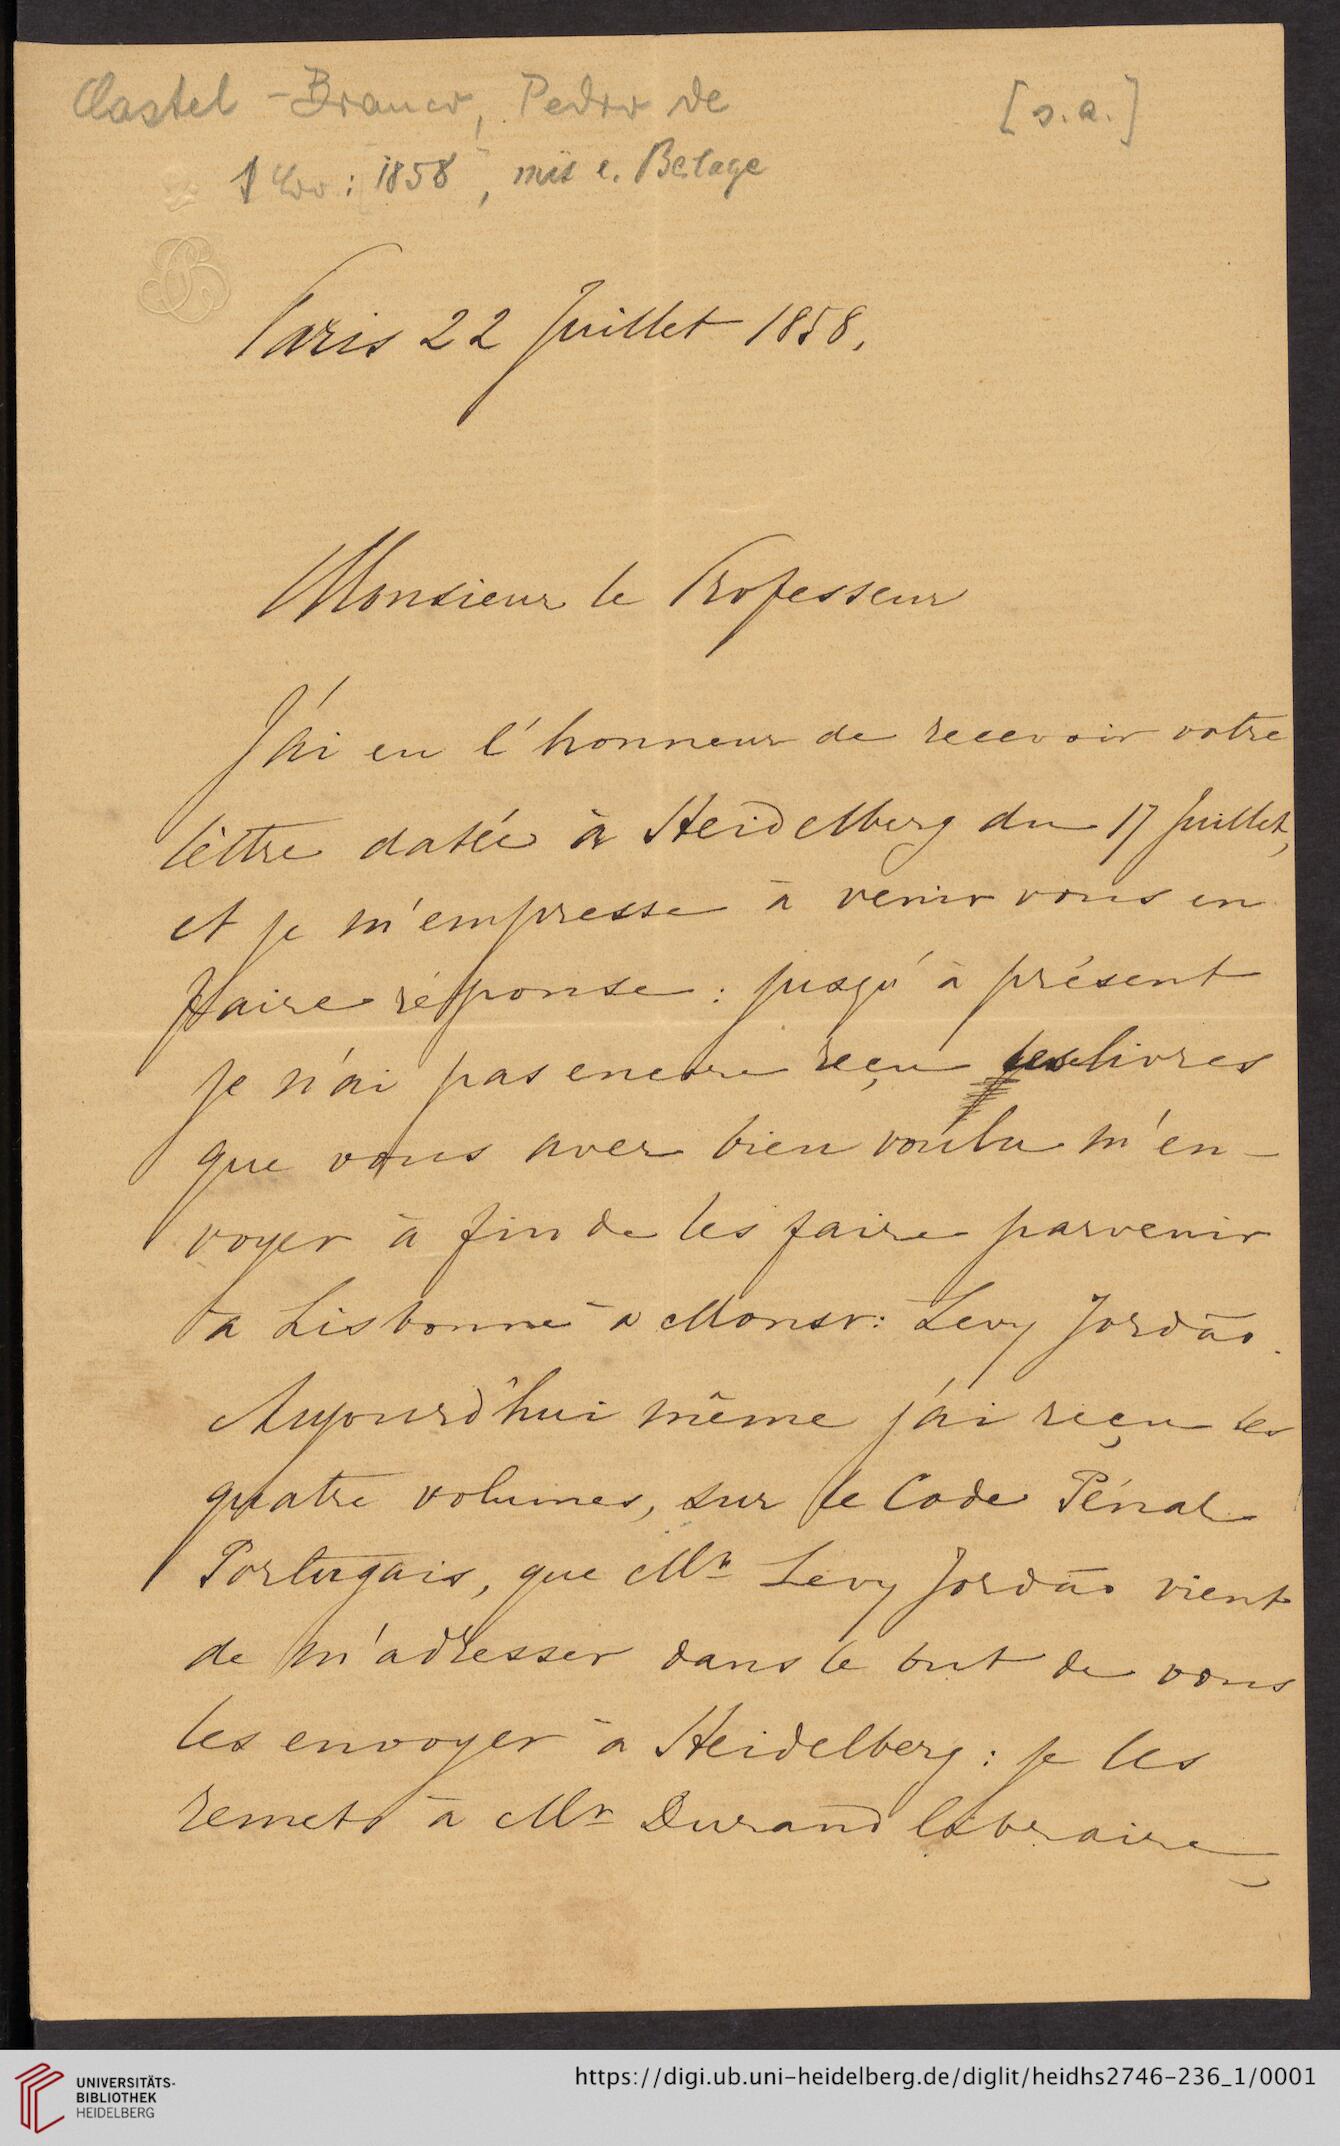 Castel-Branco, Pedro de [s.a.]
1 : 1858, mit e. Beilage
Paris 22 Juillet 1858.
Monsieur le Professeur
J'ai eu l'honneur de recevoir votre
lettre datée à Heidelberg du 17 Juillet,
et je m'empresse à venir vous en
faire réponse : jusqu'à présent
je n'ai pas encore reçu les livres
que vous avez bien voulu m'en-
voyer à fin de les faire parvenir
à Lisbonne à Monsr: Levy Jordão.
Aujourd'hui même j'ai reçu les
quatre volumes, sur le Code Pénal
Portugais, que Mr Levy Jordão vient
de m'adresser dans le but de vous
les envoyer à Heidelberg : je les
remets à Mr Durand libraire,
UNIVERSITÄTS-
BIBLIOTHEK
HEIDELBERG
https://digi.ub.uni-heidelberg.de/diglit/heidhs2746-236_1/0001